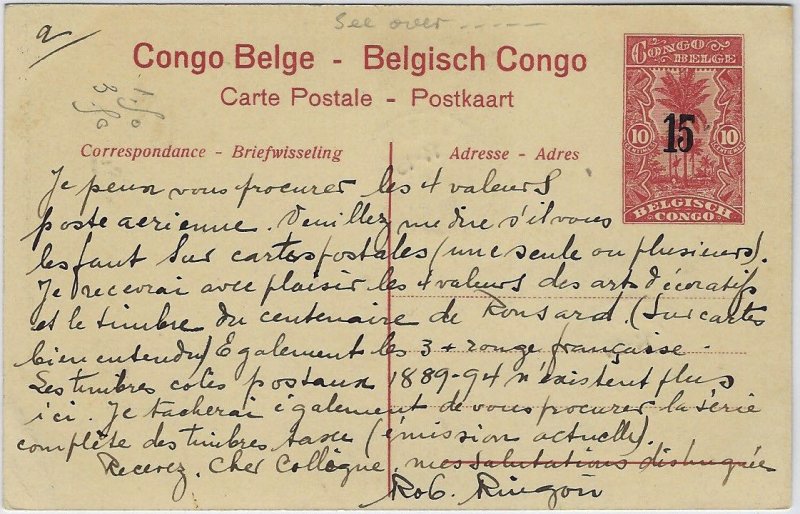 See over -----
a
1.50
3.50
Congo Belge - Belgisch Congo
Carte Postale - Postkaart
Correspondance - Briefwisseling
Adresse - Adres
CONGO BELGE
15
10 10
BELGISCH CONGO
Je peux vous procurer les 4 valeurs
poste aérienne. Veuillez me dire s'il vous
les faut sur cartes postales (une seule ou plusieurs).
Je recevrai avec plaisir les 4 valeurs des arts décoratifs
et le timbre du centenaire de Ronsard. (Sur cartes
bien entendu) Egalement les 3 + rouge française.
Les timbres colis postaux 1889-94 n'existent plus
ici. Je tacherai également de vous procurer la série
complète des timbres taxe (émission actuelle).
Recevez, cher Collègue, mes salutations distinguées
Rob.